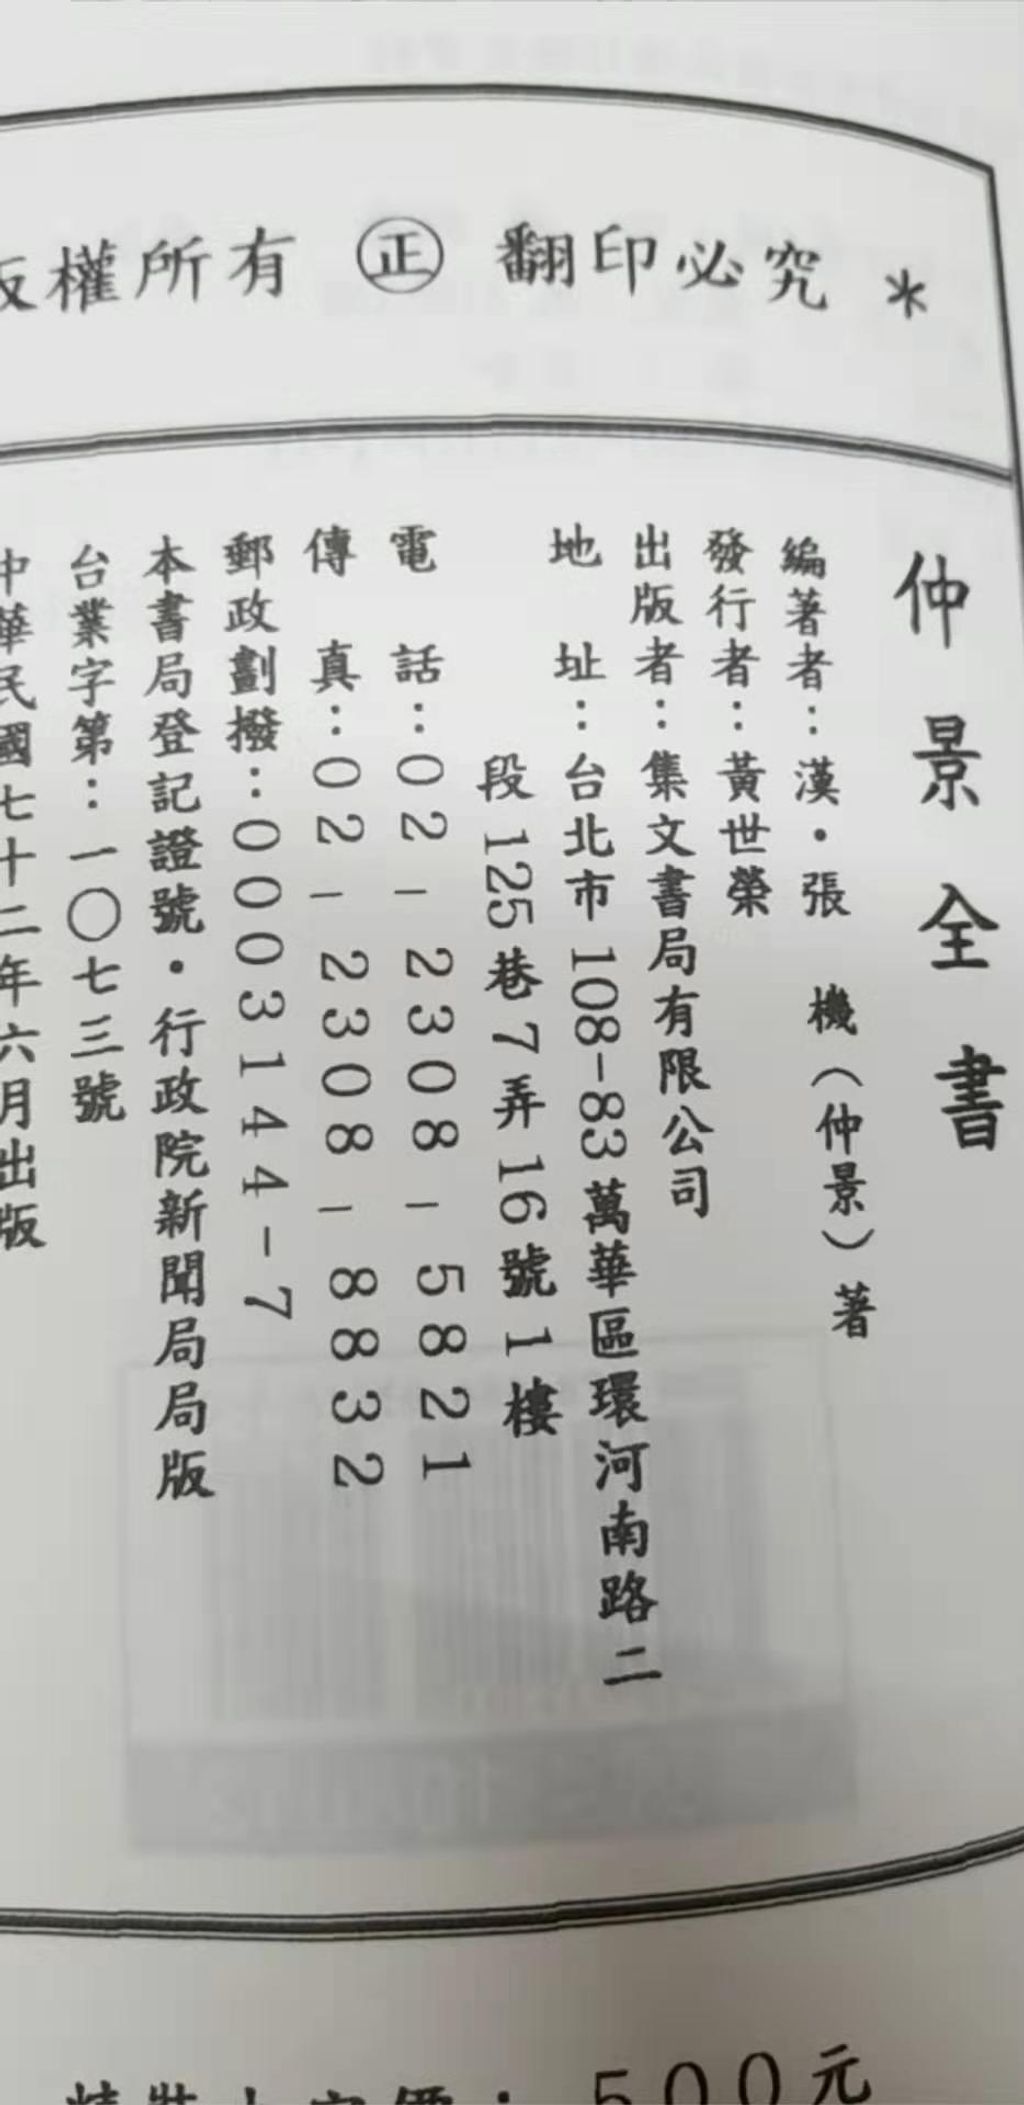 版權所有 ㊣ 翻印必究 *
仲景全書
編著者：漢・張　機（仲景）著
發行者：黃世榮
出版者：集文書局有限公司
地　址：台北市108-83萬華區環河南路二
段125巷7弄16號1樓
電　話：02－2308－5821
傳　真：02－2308－8832
郵政劃撥：0003144-7
本書局登記證號・行政院新聞局局版
台業字第：一〇七三號
中華民國七十二年六月出版
精裝本定價：500元